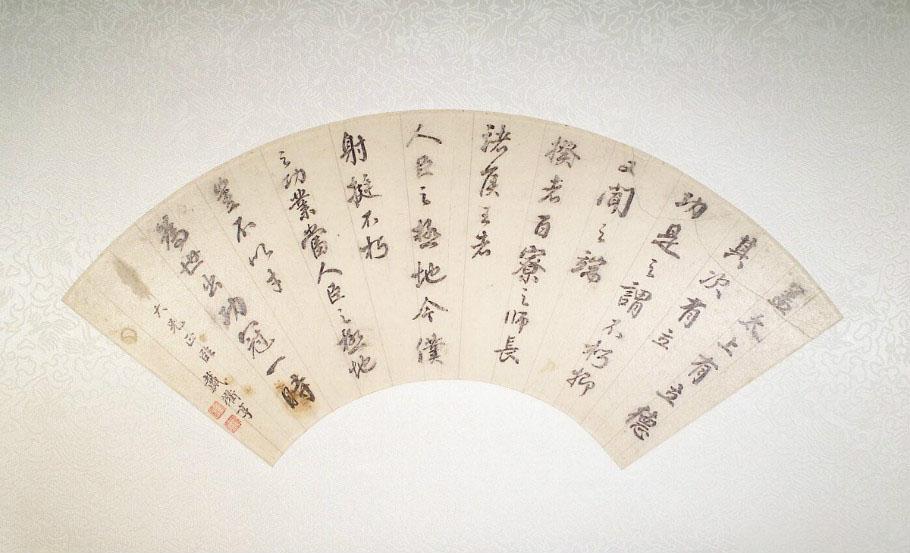 蓋太上有立德
其次有立
功是之謂不朽抑
又聞之端
揆者百寮之師長
諸侯王者
人臣之極地今僕
射挺不朽
之功業當人臣之極地
豈不以才
為世出功冠一時
大光正臨 戴